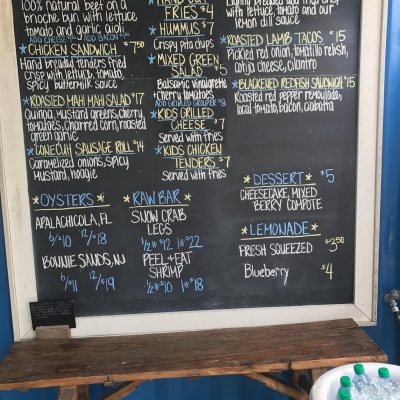 100% natural beef on a
brioche bun with lettuce
tomato and garlic aioli
ADD CHEESE ADD BACON
CHICKEN SANDWICH $7.50
Hand breaded tenders fried
crisp with lettuce, tomato,
spicy buttermilk sauce
ROASTED MAHI MAHI SALAD $17
Quinoa, mustard greens, cherry
tomatoes, charred corn, roasted
green garlic
CONECUH SAUSAGE ROLL $14
Caramelized onions, spicy
Mustard, hoagie
OYSTERS
APALACHICOLA, FL
6/$10 12/$18
BONNIE SANDS, NJ
6/$11 12/$19
FRIES $7
HUMMUS $7
Crispy pita chips
MIXED GREEN
SALAD $5
Balsamic vinaigrette
cherry tomatoes
ADD GRILLED GROUPER $8
KIDS GRILLED
CHEESE $7
Served with fries
KIDS CHICKEN
TENDERS $7
Served with fries
RAW BAR
SNOW CRAB
LEGS
1/2# $12 1# $22
PEEL + EAT
SHRIMP
1/2# $10 1# $18
with lettuce, tomato and our
lemon dill sauce
ROASTED LAMB TACOS $15
Pickled red onion, tomatillo relish,
cotija cheese, cilantro
BLACKENED REDFISH SANDWICH $15
Roasted red pepper remoulade,
local tomato, bacon, ciabatta
DESSERT $5
CHEESECAKE, MIXED
BERRY COMPOTE
LEMONADE
FRESH SQUEEZED $3.50
Blueberry $4